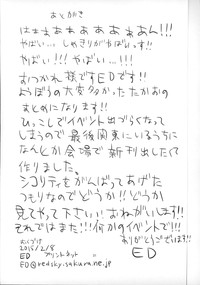 あとがき
はぁぁぁぁぁぁぁぁぁん!!!
やばい… しめきりがやばいっす!!
やばい!!! やばい…!!!
おつかれ様ですEDです!!
おっぱいの大変多かったたかおの
まとめになります!!
ひっこしでイベント出づらくなって
しまうので最後関東にいるうちに
なんとか会場で新刊出したくて
作りました。
シコリティをがんばってあげた
つもりなのでどうか!!どうか
見てやって下さい!!おねがいします!!
それではまた!!!何かのイベントで!!
ありがとうございます!!
ED
おくづけ
2015/2/8
ED プリントネット
ED@redsky.sakura.ne.jp